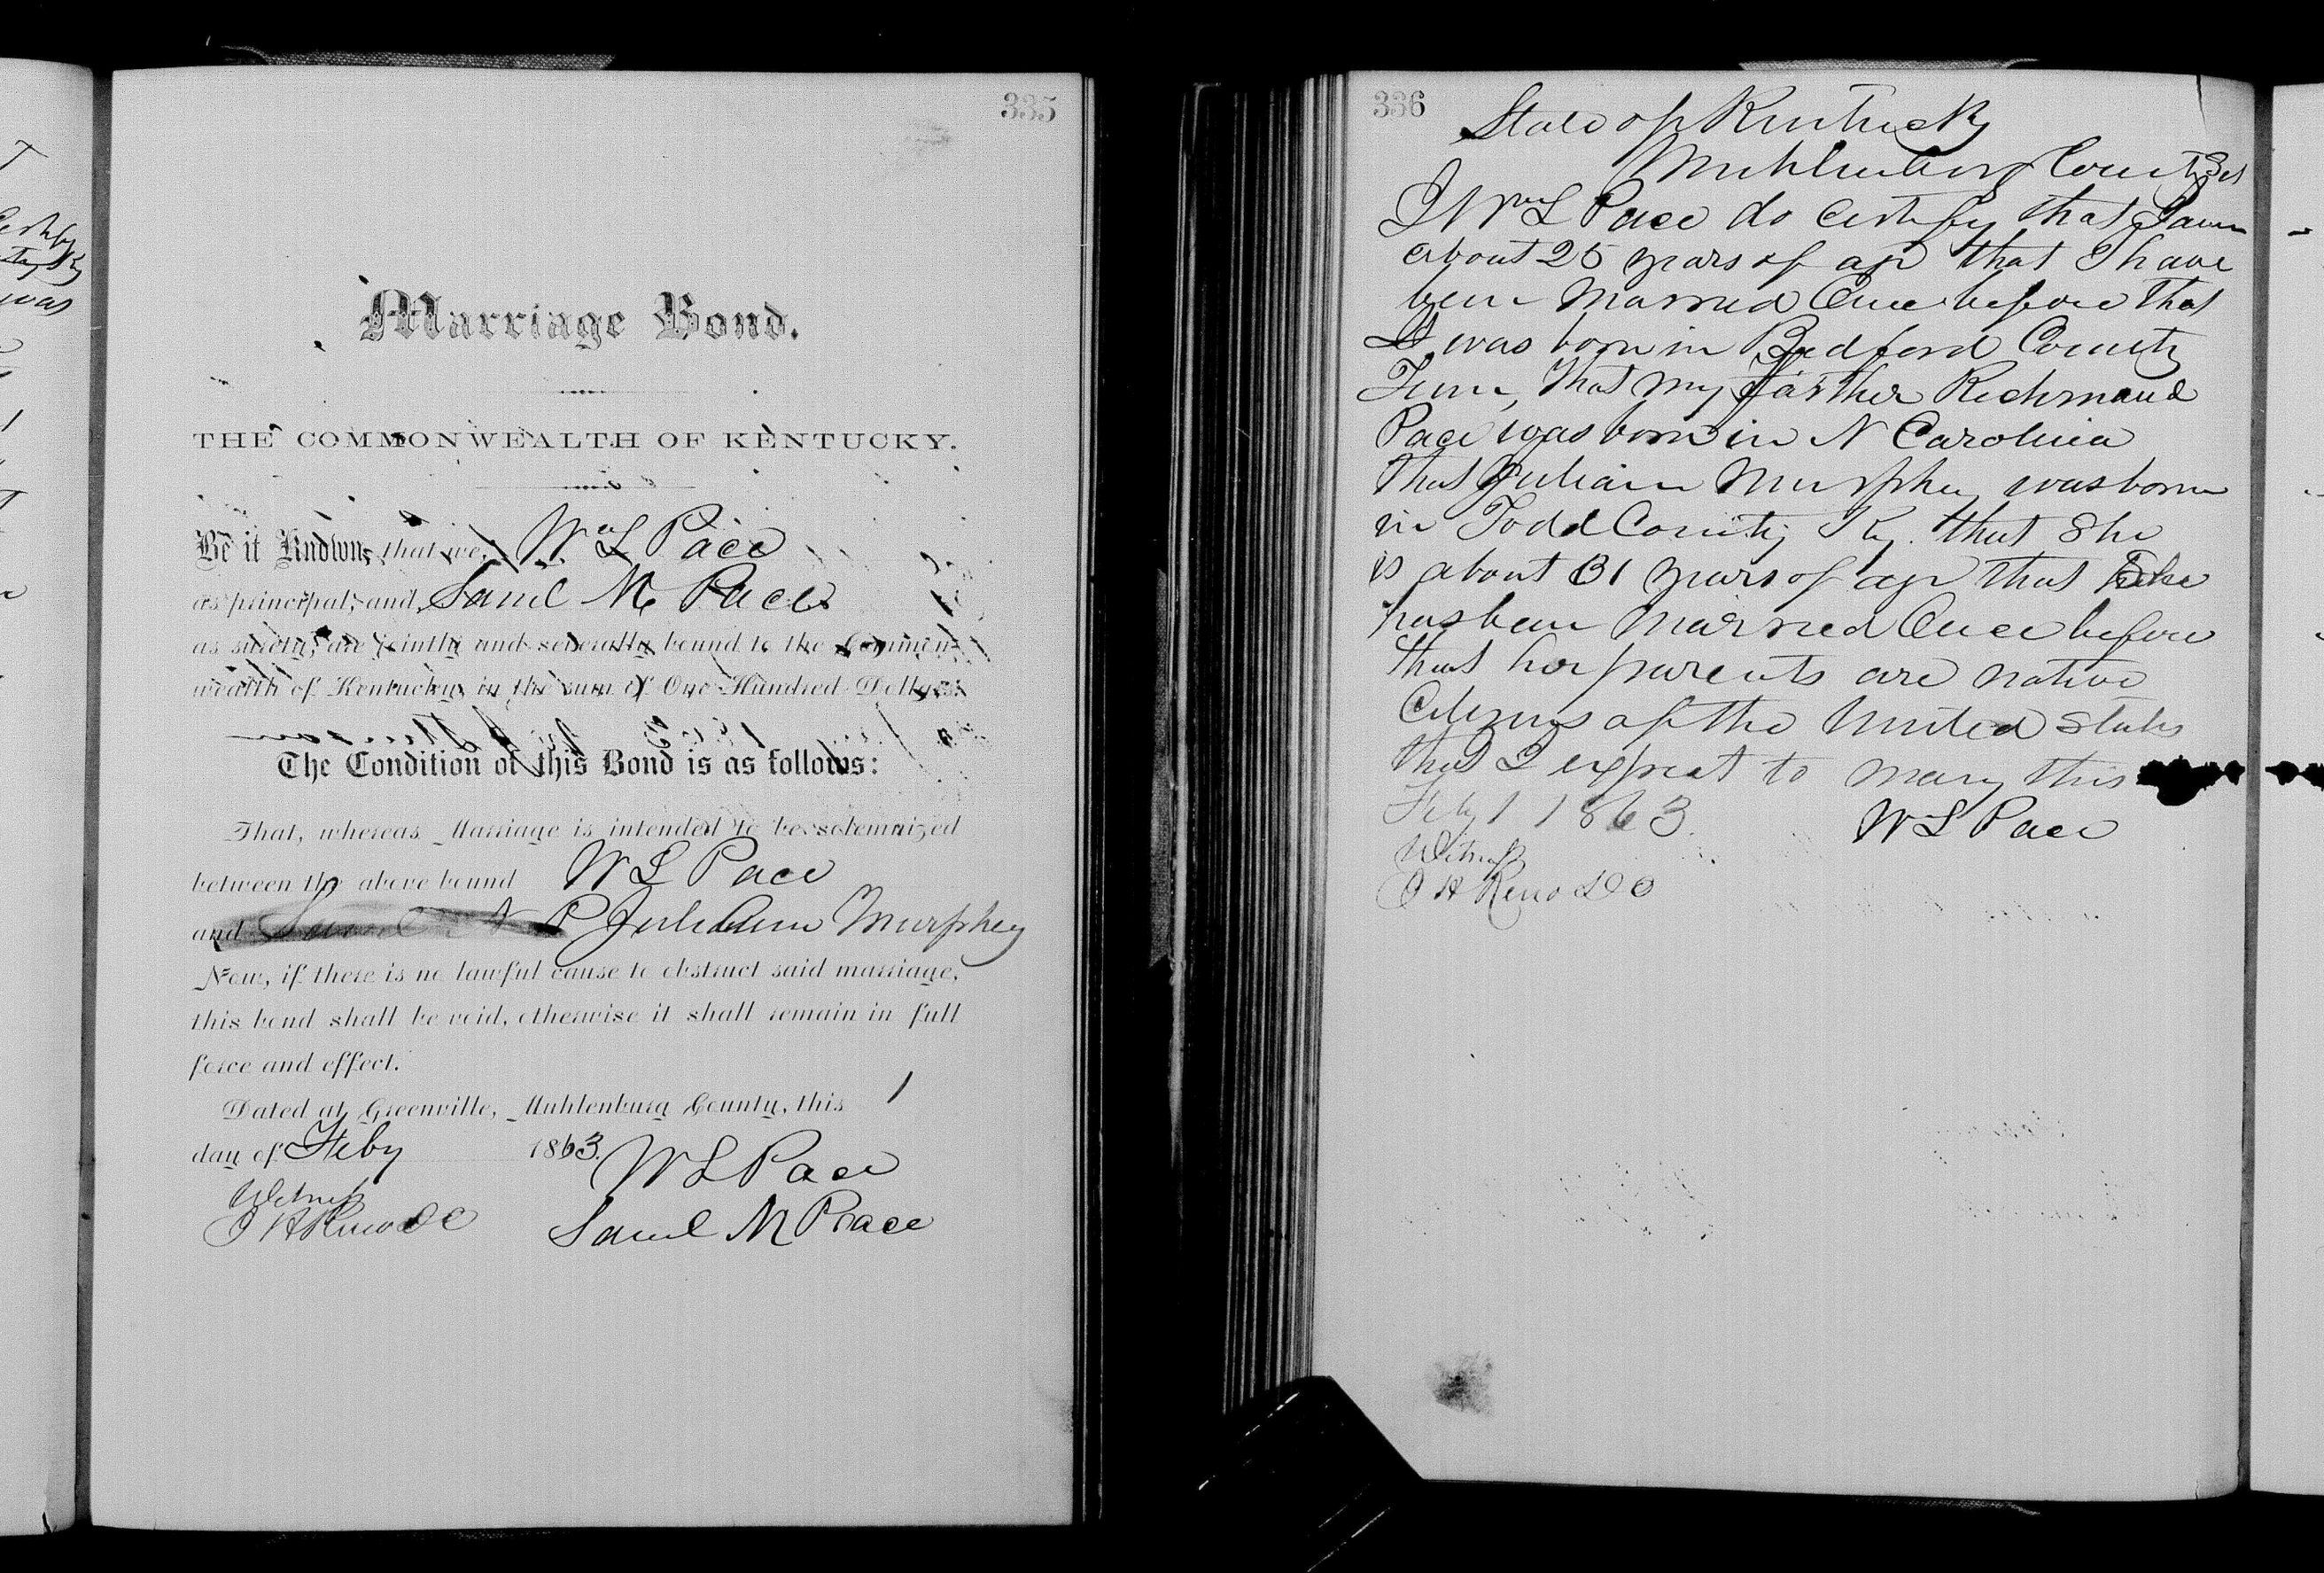 335
Marriage Bond.
THE COMMONWEALTH OF KENTUCKY.
Be it Known, that we, Wm L Pace
as principal, and Saml M Pace
as surety, are jointly and severally bound to the Common-
wealth of Kentucky, in the sum of One Hundred Dollars:
The Condition of this Bond is as follows:
That, whereas Marriage is intended to be solemnized
between the above bound W L Pace
and Juliann Murphey
Now, if there is no lawful cause to obstruct said marriage,
this bond shall be void, otherwise it shall remain in full
force and effect.
Dated at Greenville, Muhlenburg County, this 1
day of Feby 1863.
W L Pace
Witness
Saml M Pace
336
State of Kentucky
Muhlenburg County Sct
I Wm L Pace do certify that I am
about 25 years of age that I have
been Married Once before that
I was born in Bedford County
Tenn, that my farther Richmond
Pace was born in N Carolina
that Juliann Murphey was born
in Todd County Ky. that She
is about 31 years of age that She
has been Married Once before
that her parents are native
Citizens of the United States
that I expect to mary this
Feby 1 1863.
W L Pace
Witness
J H Reno D C